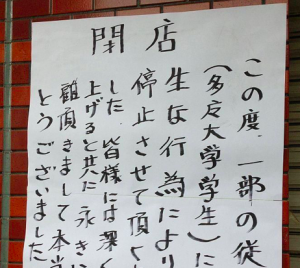 閉店
この度、一部の従
(多摩大学学生)に
生な行為により
停止させて頂く
した。皆様には深く
上げると共に永きに
顧頂きまして本当
とうございました